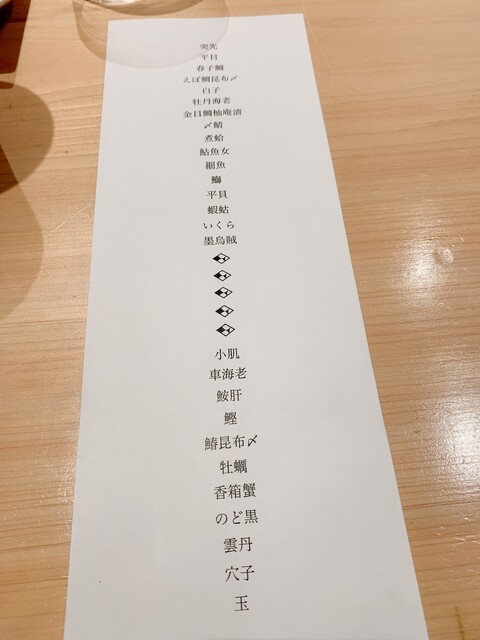 突先
平目
春子鯛
えぼ鯛昆布〆
白子
牡丹海老
金目鯛柚庵漬
〆鯖
煮蛤
鮎魚女
細魚
鰤
平貝
蝦蛄
いくら
墨烏賊
小肌
車海老
鮟肝
鰹
鰆昆布〆
牡蠣
香箱蟹
のど黒
雲丹
穴子
玉